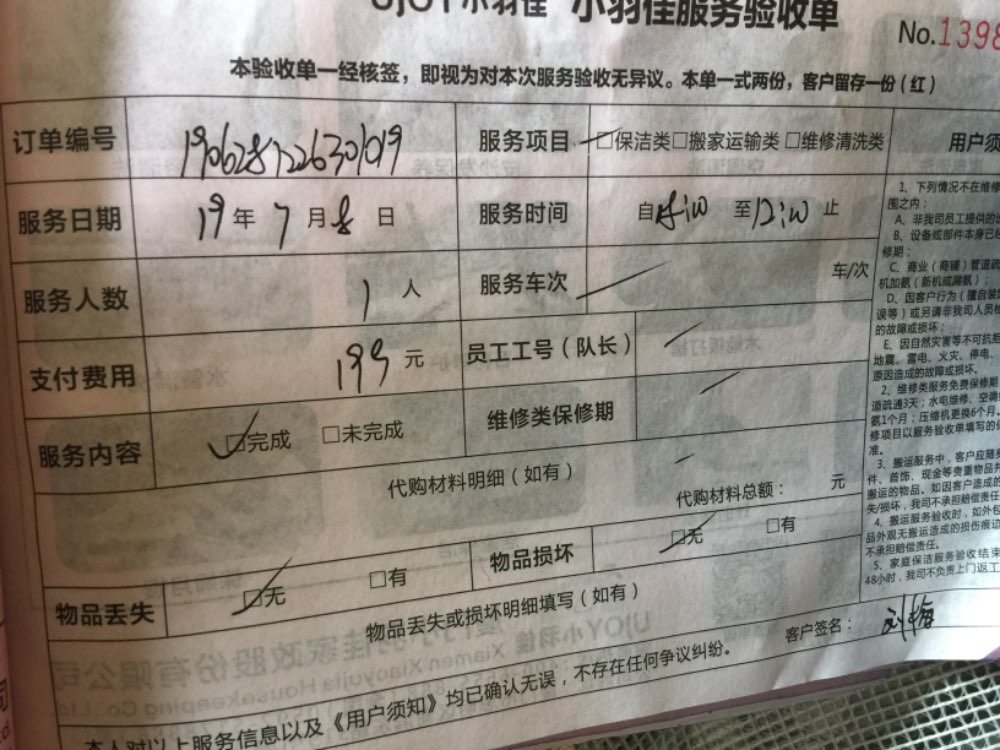 UJOY小羽佳 小羽佳服务验收单
No.1398
本验收单一经核签，即视为对本次服务验收无异议。本单一式两份，客户留存一份（红）
订单编号 190628122630109 服务项目 □保洁类□搬家运输类 □维修清洗类
服务日期 19年 7月8日 服务时间 自 至12:00 止
服务人数 1 人 服务车次 车/次
支付费用 199 元 员工工号（队长）
服务内容 □完成 □未完成 维修类保修期
代购材料明细（如有）
代购材料总额： 元
物品丢失 □无 □有 物品损坏 □无 □有
物品丢失或损坏明细填写（如有）
本人对以上服务信息以及《用户须知》均已确认无误，不存在任何争议纠纷。
客户签名： 刘梅
用户须
1、下列情况不在维修
围之内：
A、非我司员工提供的
B、设备或部件本身已
修期；
C、商业（商铺）管道疏
机加氨（新机或漏氨）；
D、因客户行为（擅自装
误等）或另请非我司人员
的故障或损坏；
E、因自然灾害等不可抗
地震、雷电、火灾、停电、
原因造成的故障或损坏。
2、维修类服务免费保修期
道疏通3天；水电维修、空调
氨1个月；压缩机更换6个月
修项目以服务验收单填写的
准。
3、搬运服务中，客户应随
件、首饰、现金等贵重物品
搬运的物品。如因客户造成的
失/损坏，我司不承担赔偿责任
4、搬运服务验收时，如外包
品外观无搬运造成的损伤痕
不承担赔偿责任。
5、家庭保洁服务验收结束
48小时，我司不负责上门返工